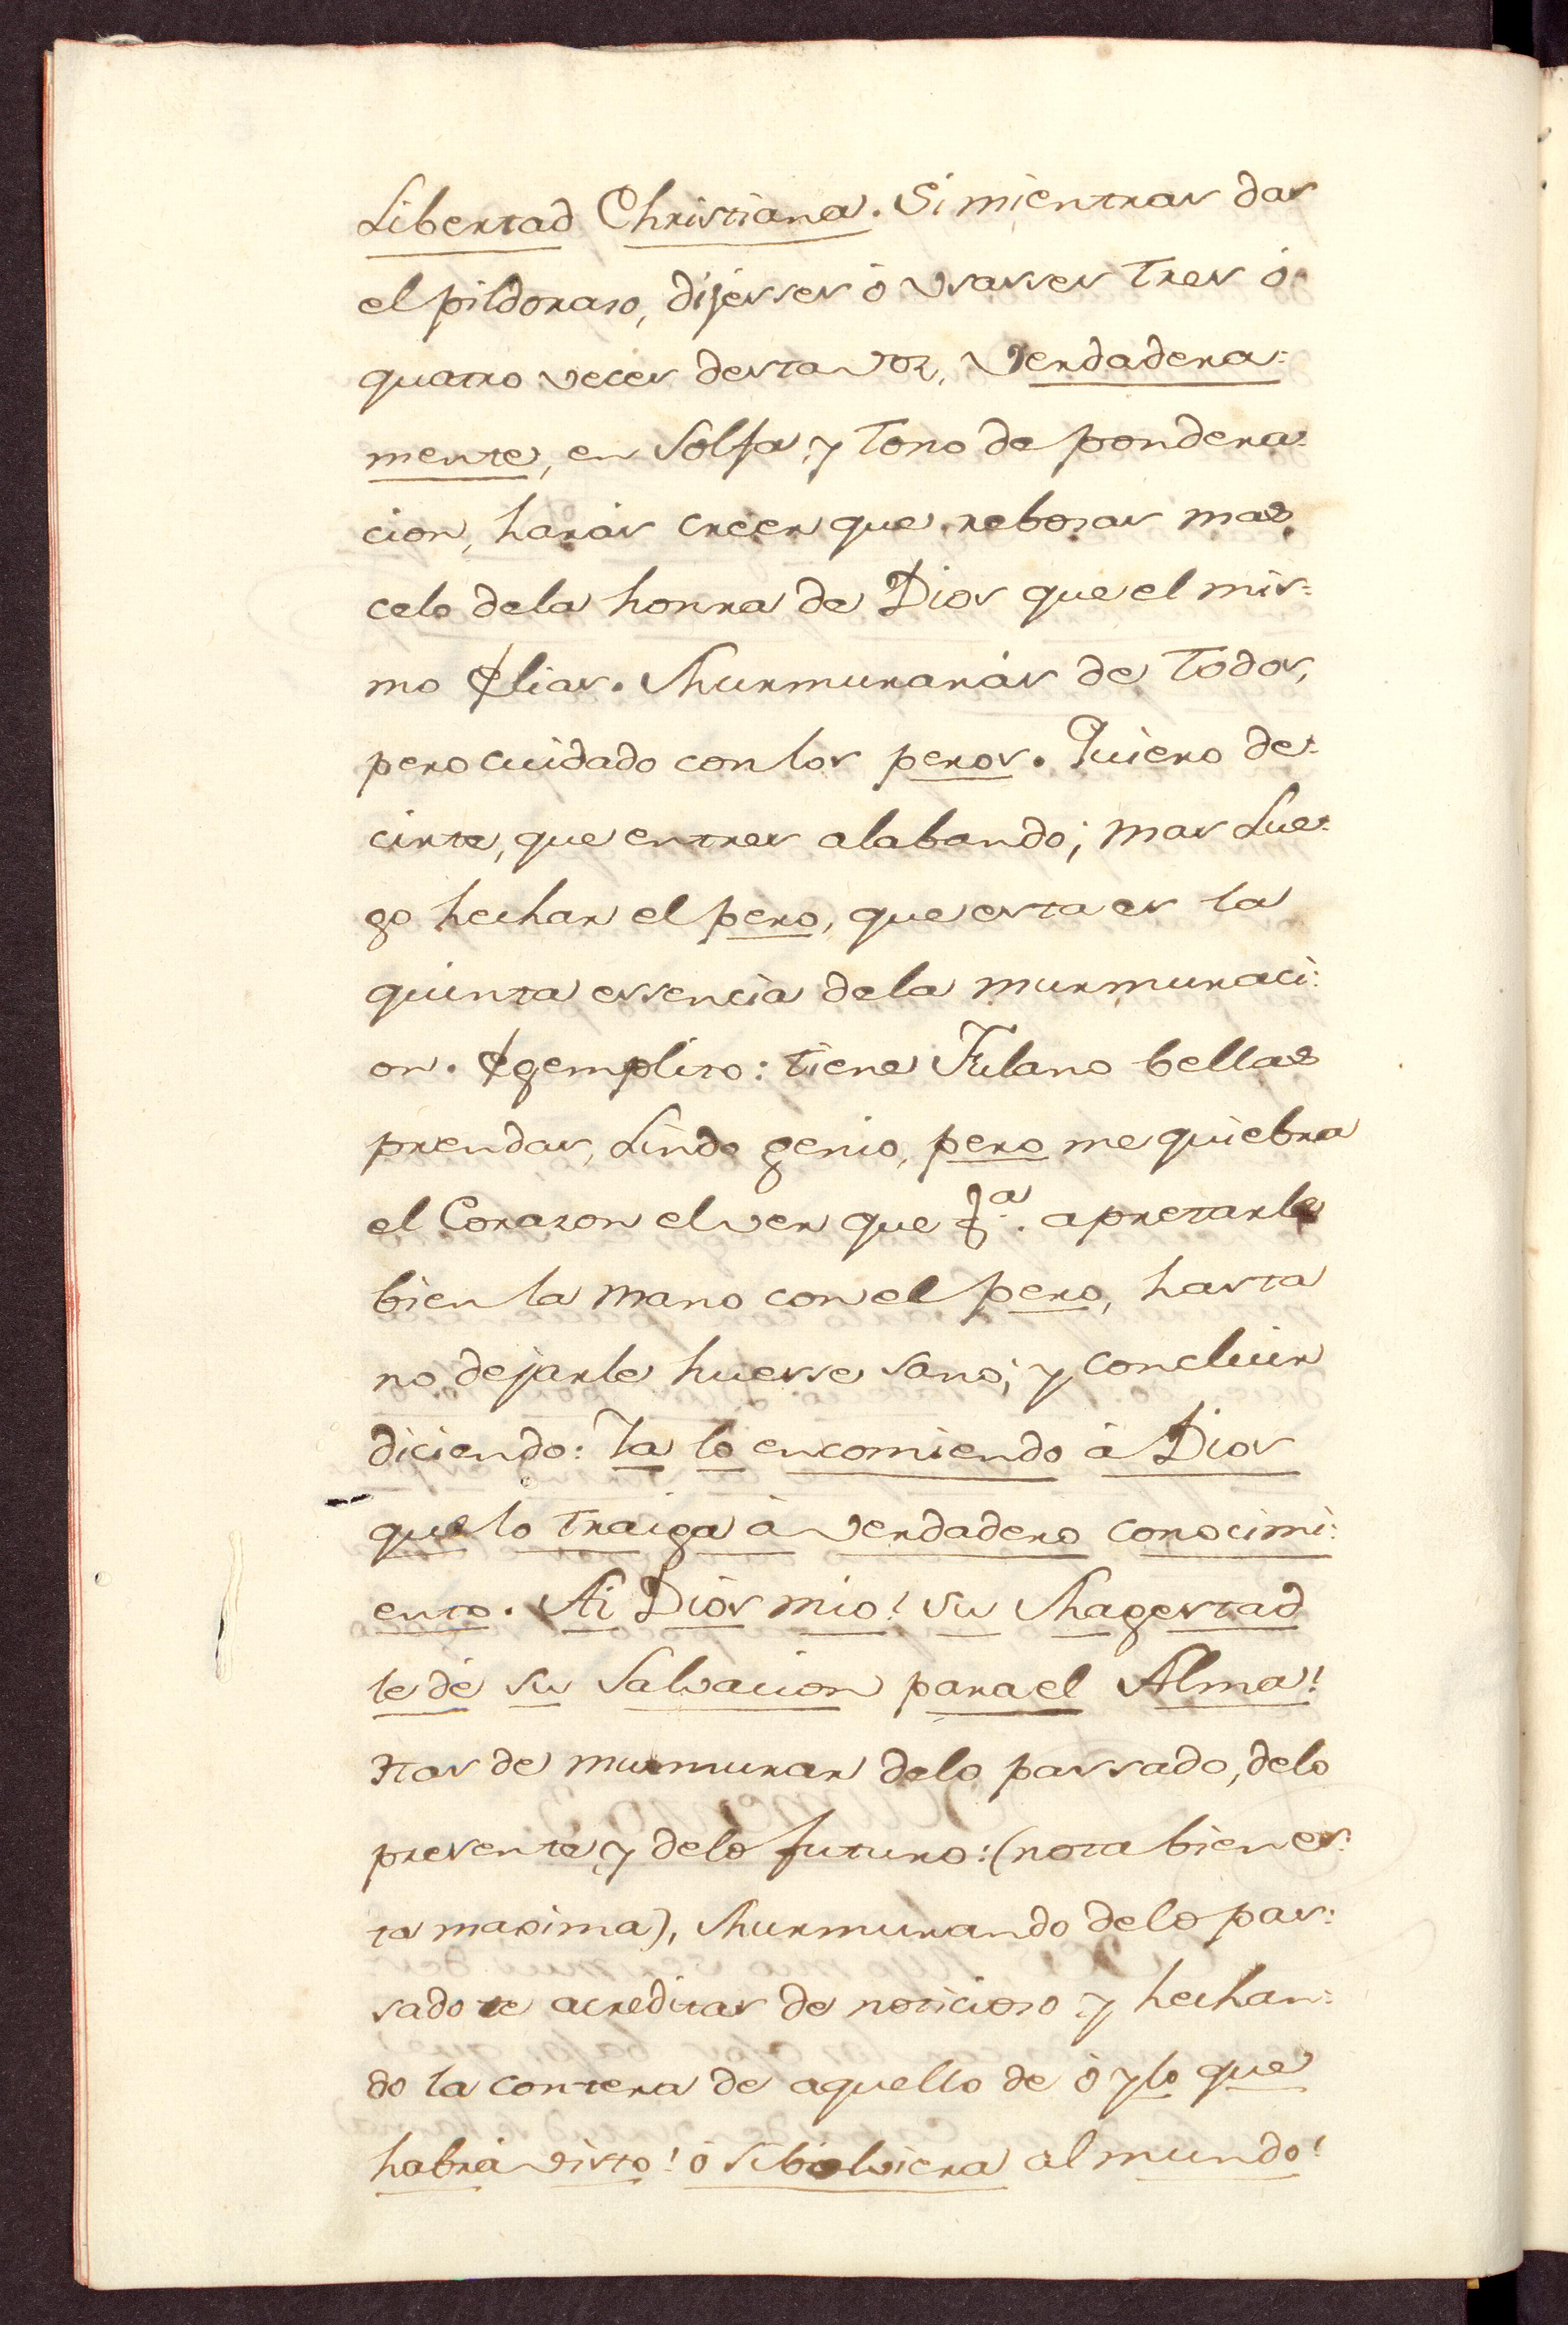 Libertad Christiana. Si mientras das
el pildoraso, dijesses ò Vsasses tres ò
quatro veces desta voz, Verdadera:
mente, en Solfa y tono de pondera:
cion, haràs creer que rebosas mas
celo dela honra de Dios que el mis:
mo Elias. Murmuraràs de todos,
pero cuidado con los peros. Quiero de:
cirte, que entres alabando; mas Lue:
go hechar el pero, que esta es la
quinta essencia dela murmuraci:
on. Egempliso: tiene Fulano bellas
prendas, Lindo genio, pero me quiebra
el Corason el ver que &a. apretarle
bien la mano con el pero, hasta
no dejarle huesse sano; y concluir
diciendo: Ya lo encomiendo à Dios
que lo traiga à verdadero conocimi:
ento. Ai Dios mio! su Magestad
le dè su Salvacion para el Alma!
Has de murmurar delo passado, delo
presente y delo futuro: (nota bien es:
ta maxima), Murmurando delo pas:
sado te acreditas de noticioso y hechan:
do la contera de aquello de ò y lo que
habrà visto! ò si bolviera al mundo!